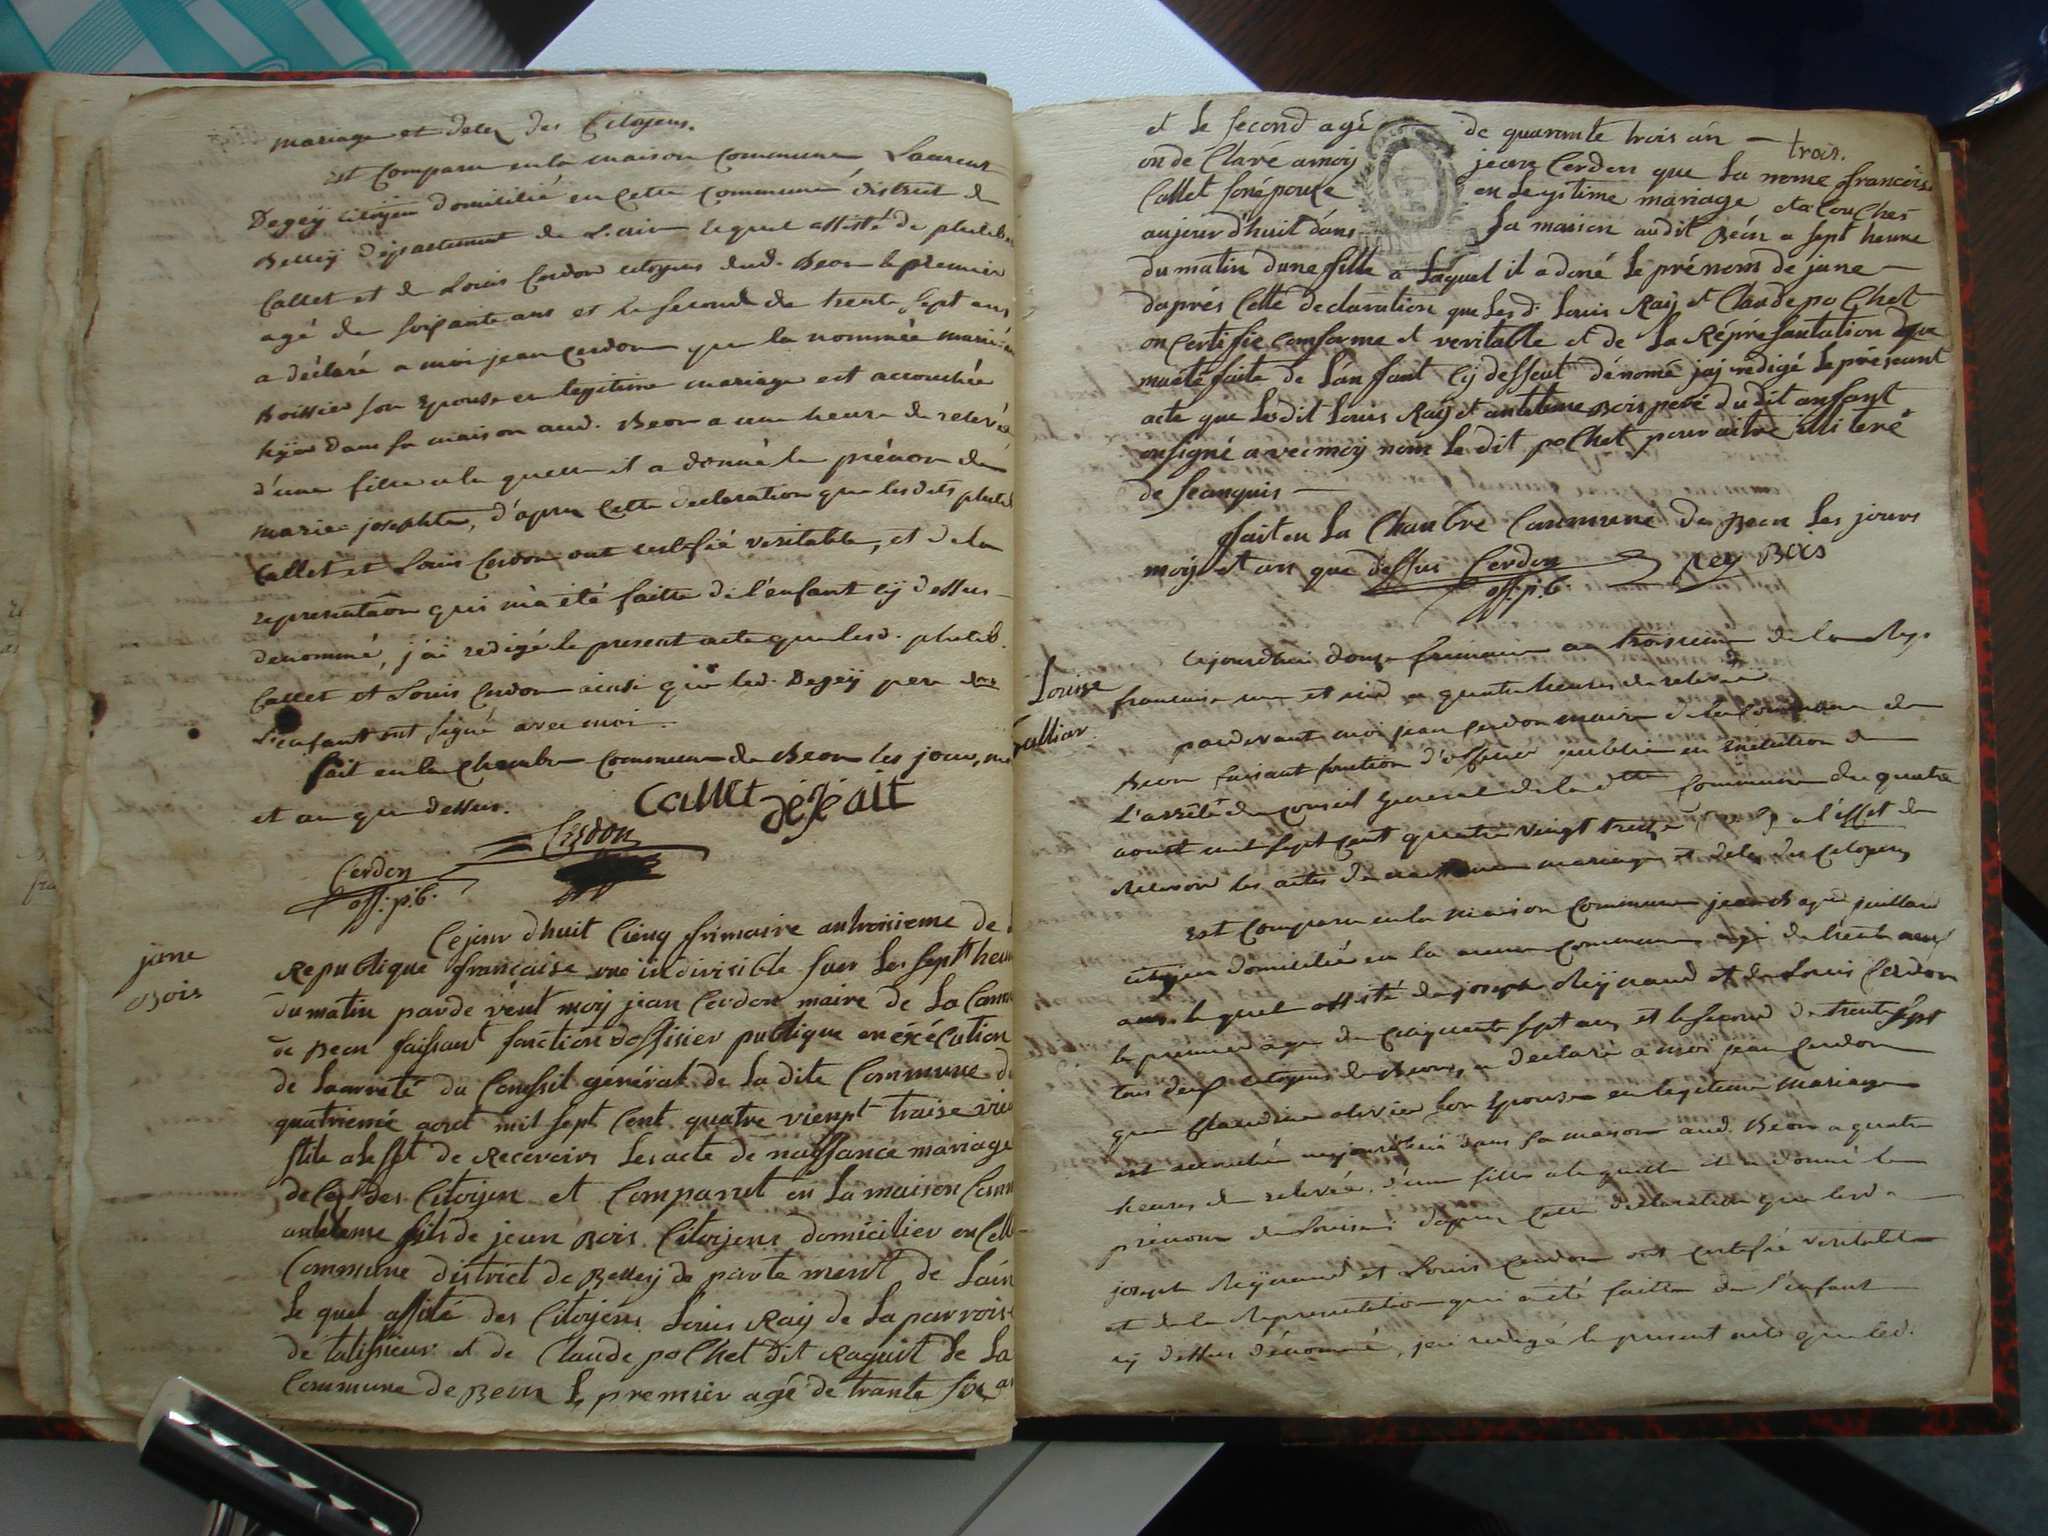 mariage et deces des Citoyens.
est comparu en la maison commune Laurent
Degeÿ Citoÿen domicilié en cette commune district de
Belleÿ département de L'ain lequel assisté de philib
Callet et de Louis Cerdon citoyens dud. Beon le premier
agé de soixante ans et le second de trente sept ans
a déclaré a moi jean cerdon que la nommée marie
Boissier son Epouse en legitime mariage est accouchée
hyer dans sa maison aud. Beon a une heure de relevée
d'une fille a la quelle il a donné le prénom de
marie josephte, d'apres cette declaration que lesdits philib
Callet et Louis Cerdon ont certifié veritable, et de la
representaôn qui m'a été faitte de l'enfant cÿ dessus
denommé, j'ai redigé le present acte que lesd. philib.
Callet et Louis Cerdon ainsi que led. Degeÿ pere de
L'enfant ont signé avec moi.
fait en la chambre commune de Beon les jour, mo
et an que dessus.
Callet déjéait
Cerdon
Cerdon
off. p.b.
jane
Bois
Cejour dhuit Cienq frimaire antroisieme de l
Republique francaise une indivisible sur les sept heur
du matin pardevent moy jean Cerdon maire de La Comm
de Beon faissant fonction doffisier publique en éxécution
de Laarreté du Conssil général de La dite Commune du
quatriemé aout mil sept Cent quatre vienpt traise vieu
stile a Lesfet de Recevoirs Les acte de naissance mariage
deces des Citoÿen et Comparut en La maison Comm
anteleme fils de jean Bois Citoÿens domicilier en Cette
Commune district de Belleÿ de parte ment de Lain
Le quel assité des Citoyens Louis Raÿ de La parroise
de talissieux et de Claude pochet dit Raguit de La
Commune de Beon Le premier agé de trante six an
et Le second agé de quarante trois an — trois.
on de Claré amoy jean Cerdon que La nome francoise
Callet son épouse en Legitime mariage et acouchés
aujour dhuit dans sa maison audit Béon a sept heure
du matin dune fille a Laquel il a doné Le prénom de jane
daprés Cette declaration que Les d. Louis Raÿ et Claude pochet
on Certifie Conforme et veritable et de La Répresantation que
ma eté faite de Lanffant Cÿ dessut dénomé jaj redigé Le présant
acte que Lesdit Louis Raÿ et anteleme Bois peré du dit anfant
on signé avec moy nom Le dit pochet pour aitre illiteré
de seanquis
fait en La Chanbre Commune de Beon Les jours
moy et an que dessus Cerdon Rey Bois
off. p.b.
Louise
Jullian.
Cejourdhui douze frimaire an troisieme de la Rep.
francaise une et ind. a quatre heures de relevée
pardevant moi jean Cerdon maire de la Commune de
Beon faisant fonction d'officier publier en exécution de
L'arrêté du conseil General de la dtte Commune du quatre
aoust mil sept cent quatre vingt treize a l'effet de
recevoir les actes de naissance mariage et deces des Citoyens
est comparu en la maison commune jean Bapte juillard
citoyen domicilié en la meme commune agé de trente neuf
ans, le quel assisté de joseph Reÿnaud et de Louis Cerdon
le premier agé de cinquante sept ans et le second de trente sept
tous deux citoyens de Beon, a déclaré a moi jean Cerdon
que Claudine olivier son Epouse en legitime mariage
est accouchée aujourdhui dans sa maison aud. Beon a quatre
heures de relevée, d'une fille a la quelle il a donné le
prénom de Louise: d'apres cette déclaration que lesd.
joseph Reÿnaud et Louis Cerdon ont certifié veritable
et de la Representation qui a été faitte de l'enfant
cÿ dessus dénommé, j'ai redigé le present acte que led.